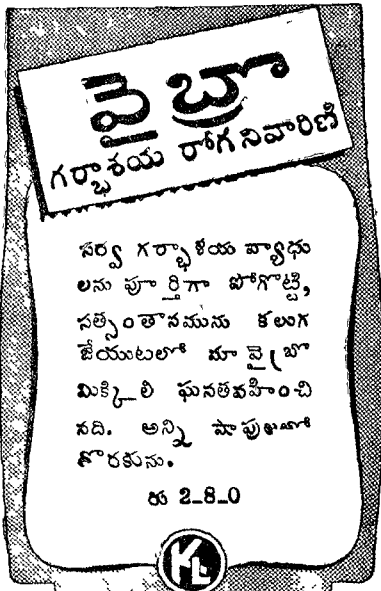 వైబ్రా
గర్భాశయ రోగనివారిణి
సర్వ గర్భాశయ వ్యాధు
లను పూర్తిగా పోగొట్టి,
సత్సంతానమును కలుగ
జేయుటలో మా వైబ్రా
మిక్కిలి ఘనతవహించి
నది. అన్ని షాపులలో
దొరకును.
రు 2-8-0
KL